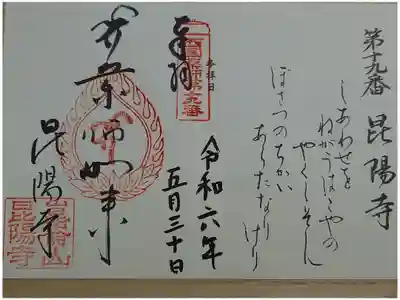 第十九番 昆陽寺
しあわせを
ねがうはこやの
やくしそん
ほさつのちかい
あらたなり
けり
参拝日
令和六年
五月三十日
奉拝
薬師如来
昆陽寺
崑崙山
昆陽寺